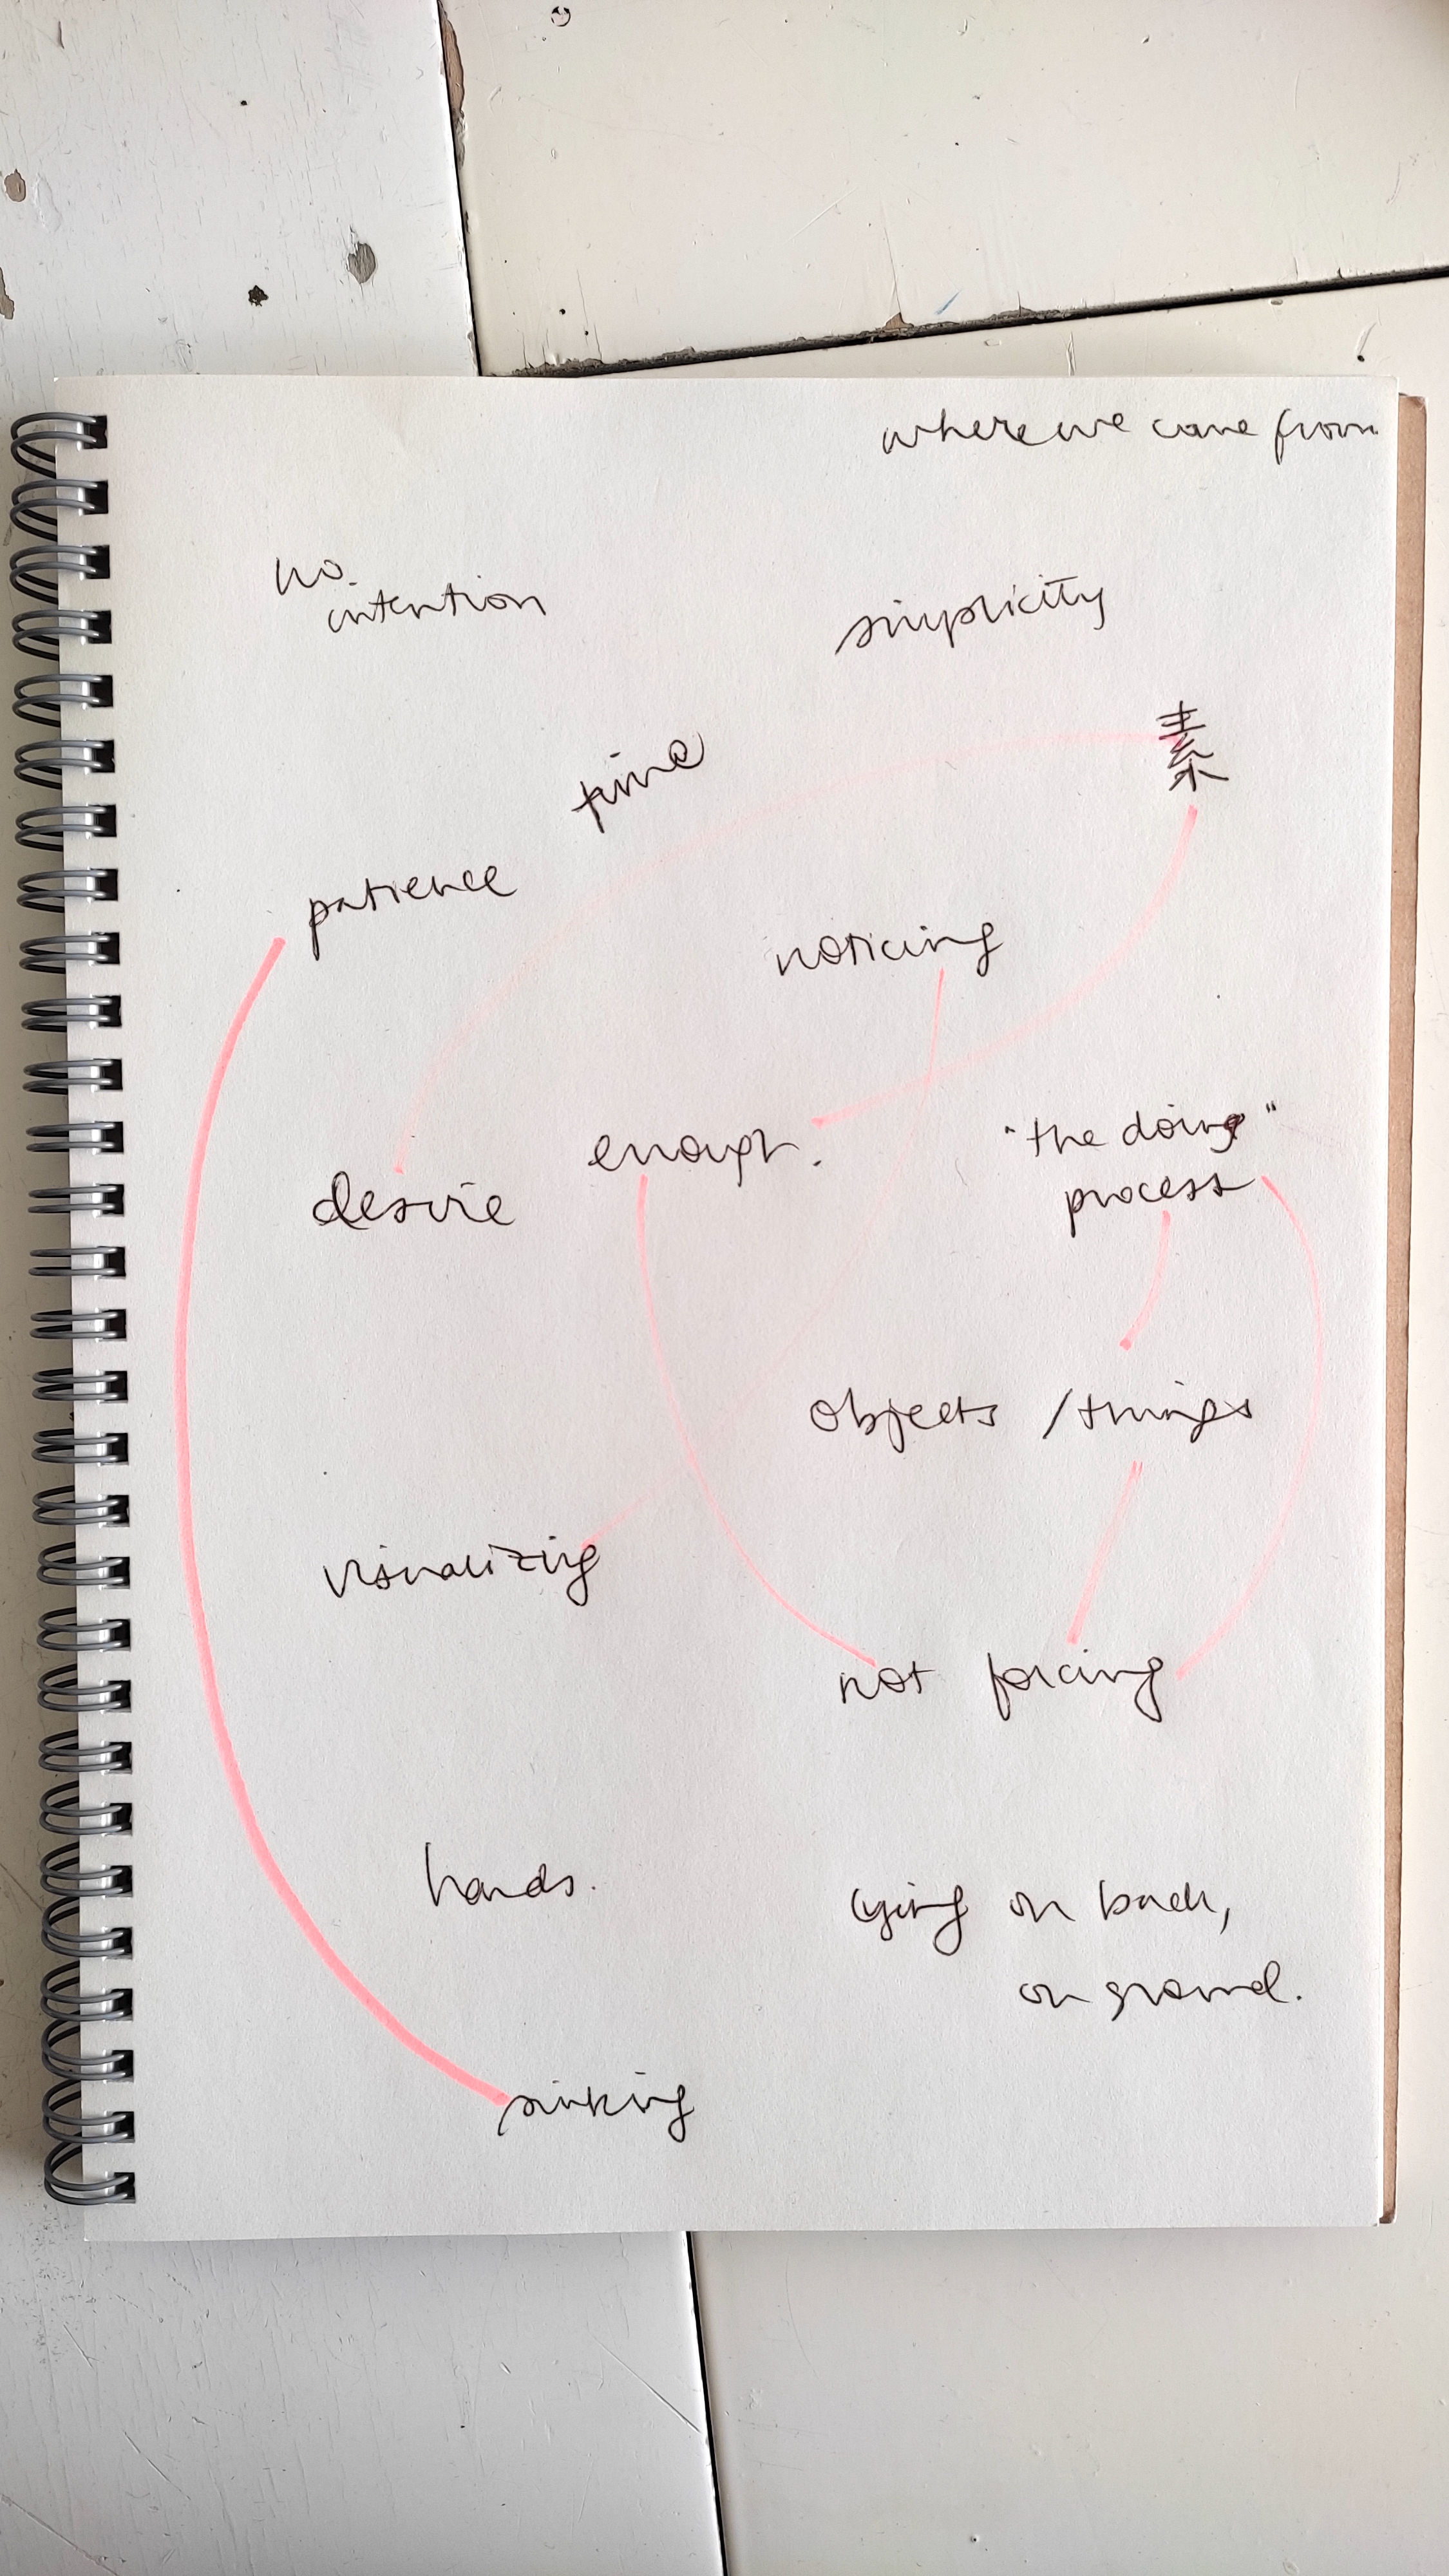 where we came from
no
intention
simplicity
素
time
patience
noticing
"the doing"
process
enough.
desire
objects / things
visualizing
not forcing
hands.
lying on back,
on ground.
sinking